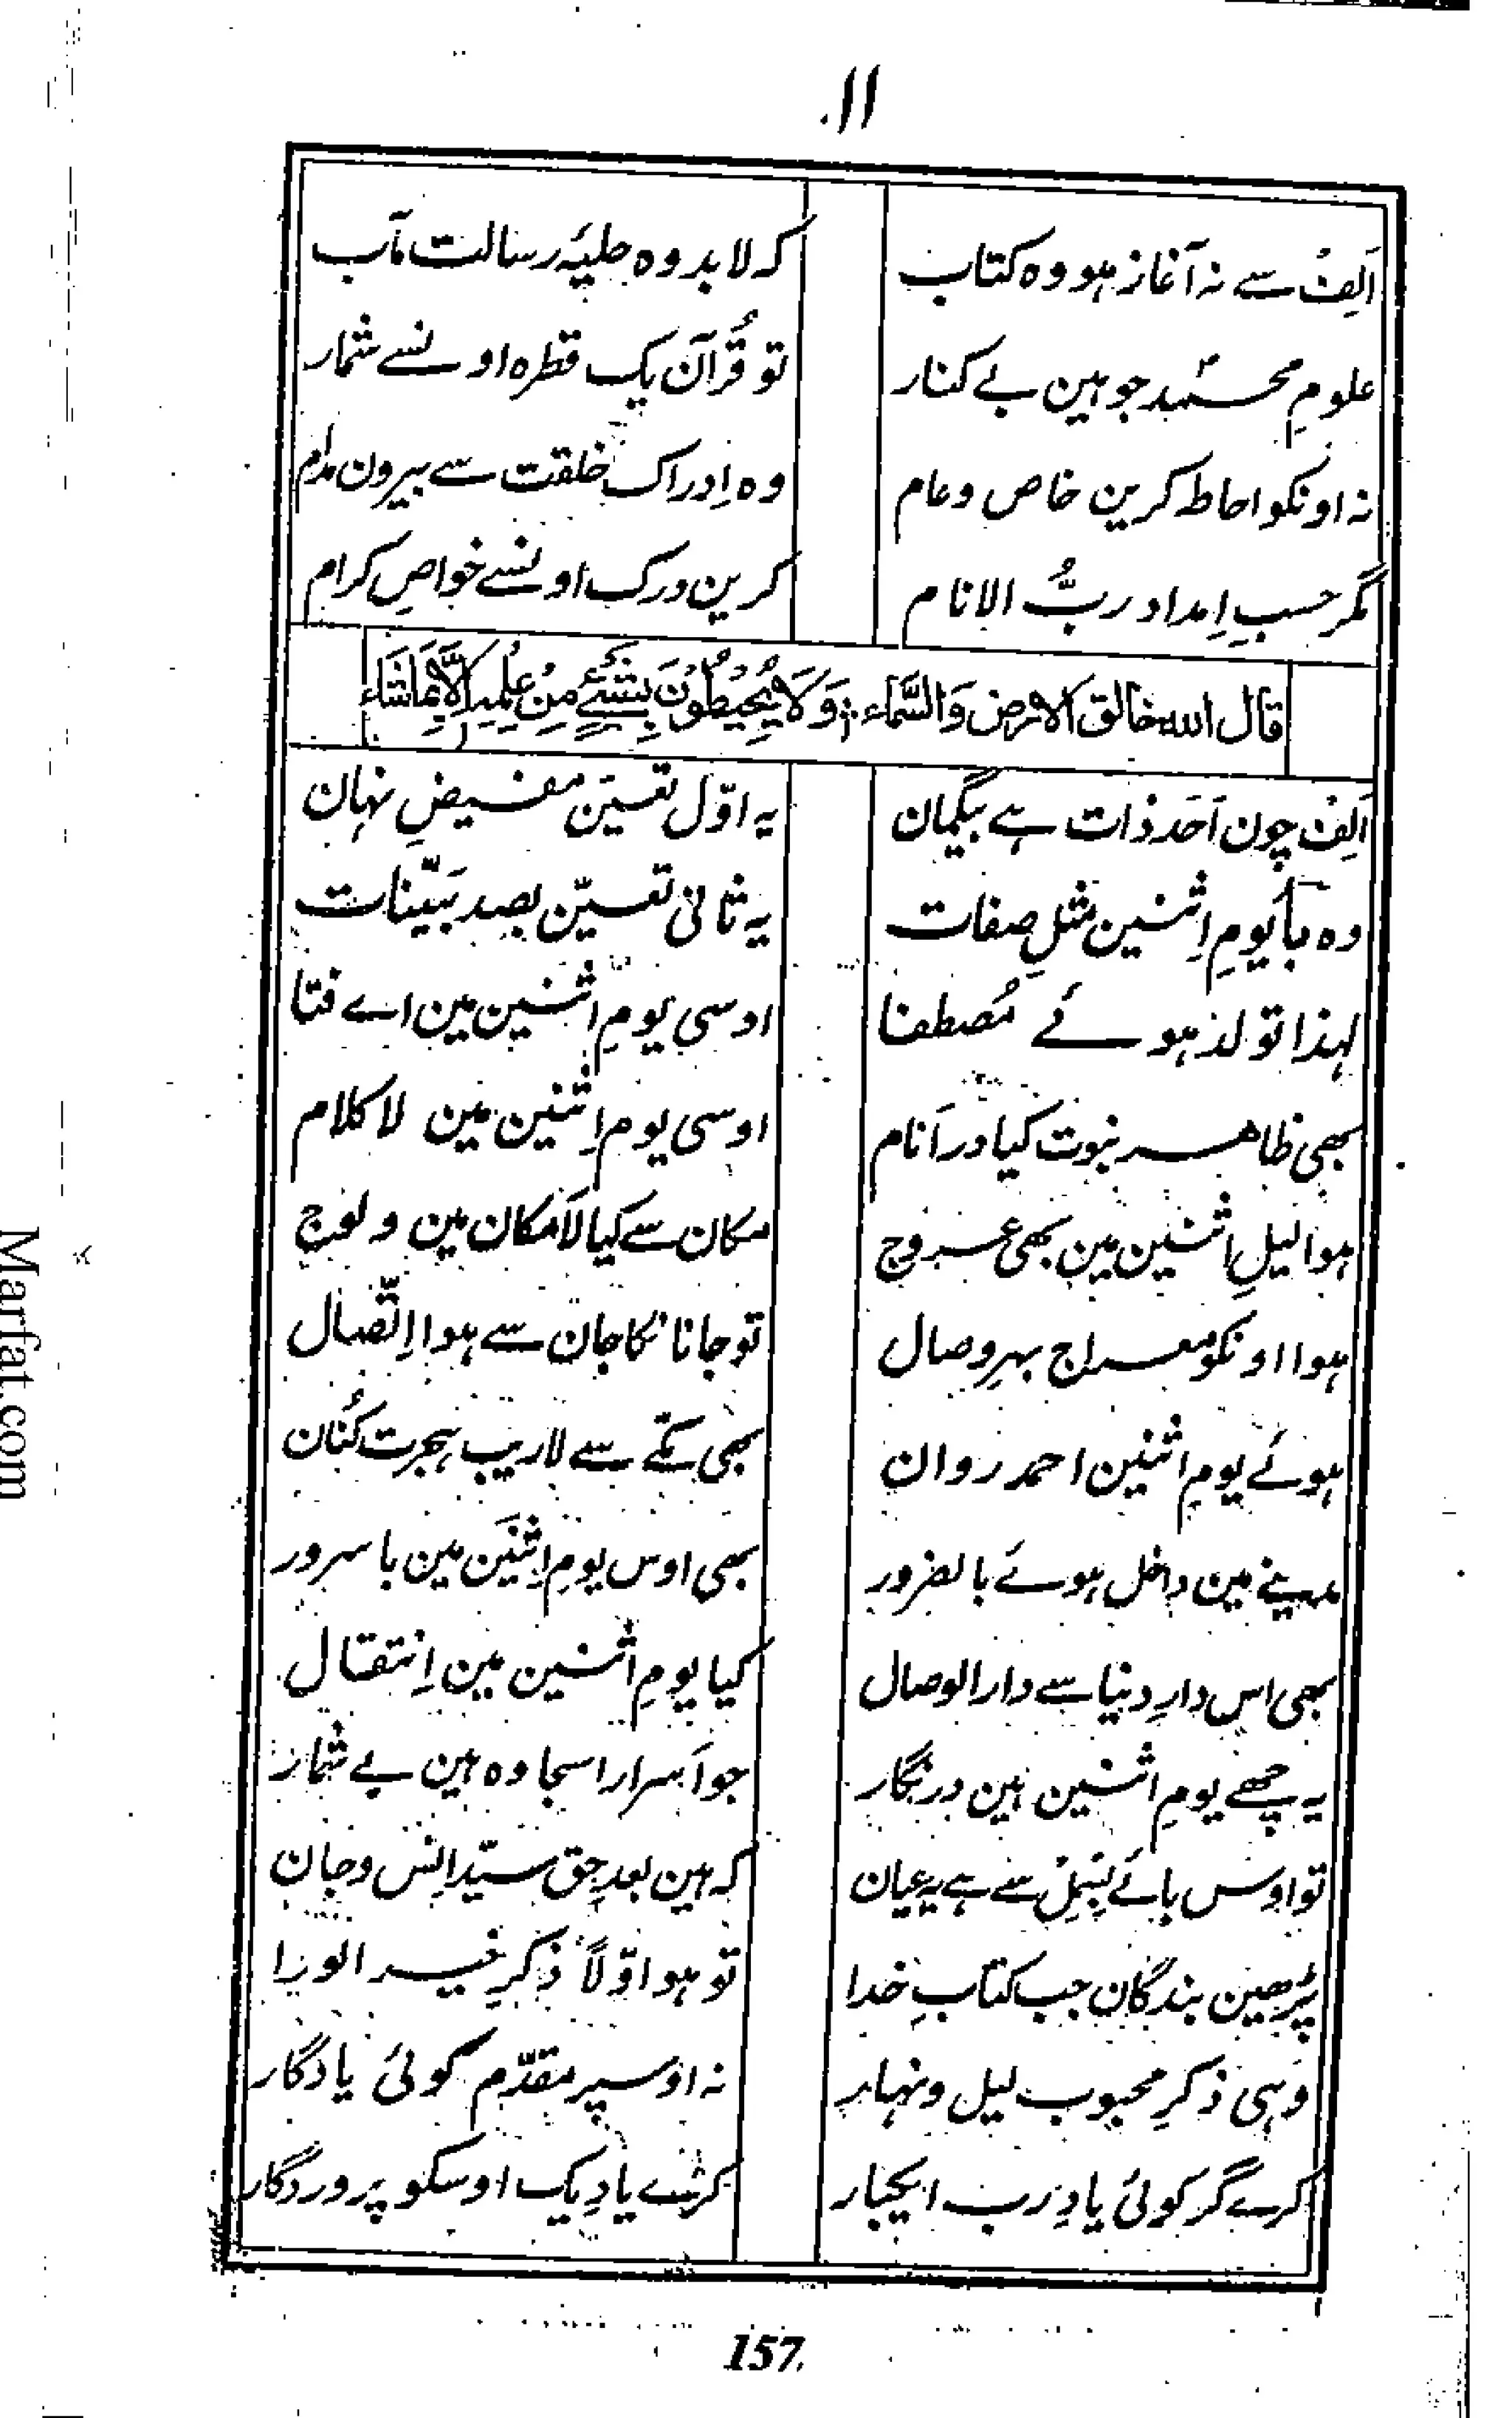 ۱۱
اَلِفْ سے نہ آغاز ہو وہ کتاب کہ لابد وہ حلیۂ رسالت مآب
علومِ محمّد جو ہین بے کنار تو قُرآن یک قطرہ اونسے شمار
نہ اونکو احاطہ کرین خاص و عام وہ اِدراک خلقت سے بیرون مدام
مگر حسبِ اِمداد ربُّ الانام کرین درک اونسے خواصِ کرام
قال اللہ خالق الارض وَالسَّماء وَلَا يُحِيْطُوْنَ بِشَيْءٍ مِنْ عِلْمِہٖ اِلَّا بِمَا شَاءَ
اَلِفْ چون اَحَد ذات ہے بیگمان یہ اوّل تعیّن مفیضِ نہان
وہ با یومِ اِثنین مثلِ صفات یہ ثانی تعیّن بصد بَیّنات
لہذا تولد ہوئے مُصطفا اوسی یومِ اثنین مین اے فتا
بھی ظاہر نبوت کیا در اَنام اوسی یومِ اِثنین مین لا کلام
ہوا لیلِ اثنین مین بھی عروج مکان سے کیا لا مکان مین ولوج
ہوا اونکو معراج بہرِ وصال تو جانا نکا جان سے ہوا اِتّصال
ہوئے یومِ اثنین احمد روان بھی مکّے سے لاریب ہجرت کُنان
مدینے مین داخل ہوئے بالضرور بھی اوس یومِ اِثنَین مین با سرور
بھی اس دارِ دنیا سے دار الوصال کیا یومِ اثنین مین اِنتقال
یہ چھے یومِ اثنین ہین در نگار جو اَسرار اسجا وہ ہین بے شمار
تو اوس بائے بِسْمِلْ سے ہے یہ عیان کہ ہین بعدِ حق سیّدِ اِنس و جان
پڑھین بندگان جب کتابِ خدا تو ہو اوّلاً ذکرِ خیر الورا
وہی ذکرِ محبوب لیل و نہار نہ اوسپر مقدّم کوئی یادگار
کرے گر کوئی یادِ رب ایکبار کرے یادِ یک اوسکو پروردگار
157
Marfat.com